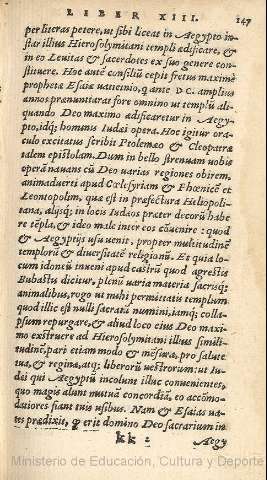 LIBER XIII. 147
per literas petere, ut sibi liceat in Aegypto in-
star illius Hierosolymitani templi ædificare, &
in eo Levitas & sacerdotes ex suo genere con-
stituere. Hoc autē consiliū cepit fretus maximè
prophetæ Esaiæ vaticinio, qui ante DC. amplius
annos prænuntiarat fore omnino ut templū ali-
quando Deo maximo ædificaretur in Aegy-
pto, idq; hominis Iudæi opera. Hoc igitur ora-
culo excitatus scribit Ptolemæo & Cleopatræ
talem epistolam. Dum in bello strenuam vobis
operā navans cū Deo varias regiones obirem,
animadverti apud Cœlesyriam & Phœnicē et
Leontopolim, qua est in præfectura Heliopoli-
tana, alijsq; in locis Iudæos præter decorū habe
re tēpla, & ideo male inter eos cōuenire: quod
& Aegyptijs usu venit, propter multitudinē
templorū & diversitatē religionū. Et quia lo-
cum idoneū inveni apud castrū quod agrestis
Bubastis dicitur, plenū varia materia sacrisq;
animalibus, rogo ut mihi permittatis templum
quod illic est nulli sacratū numini, iamq; colla-
psum repurgare, & aliud loco eius Deo maxi-
mo exstruere ad Hierosolymitani illius simili-
tudinē, pari etiam modo & mēsura, pro salute
tua, & reginæ, atq; liberorū vestrorum: ut Iu-
dæi qui Aegyptū incolunt illuc convenientes,
quo magis alunt mutuā concordiā, eo accōmo-
datiores fiant tuis usibus. Nam & Esaias va-
tes prædixit, q̃ erit domino Deo sacrarium in
kk 2 Aegy
Ministerio de Educación, Cultura y Deporte